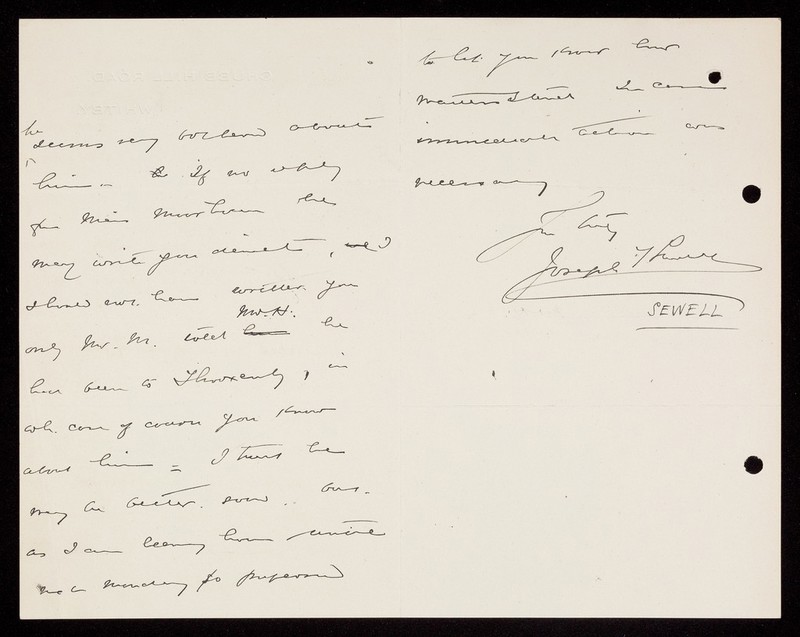 he
seems very bothered about
him. If no reply
for Miss Morshum he
may write you direct, and I
should not have written you
Mr. H.
only Mr. M. told him he
has been to , in
wh. case of course you know
about him = I trust he
may be better soon. but.
as I am leaving home until
next Monday so preferred
to let you know how
matters stand in case
immediate action was
necessary
Yrs truly
Joseph Sewell
SEWELL